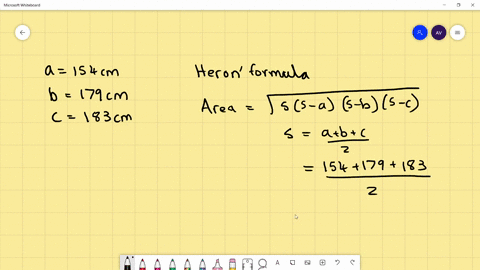 Microsoft Whiteboard
AV
a = 154cm
b = 179cm
c = 183cm
Heron' formula
Area = √s(s-a)(s-b)(s-c)
s = a+b+c
2
= 154+179+183
2
A